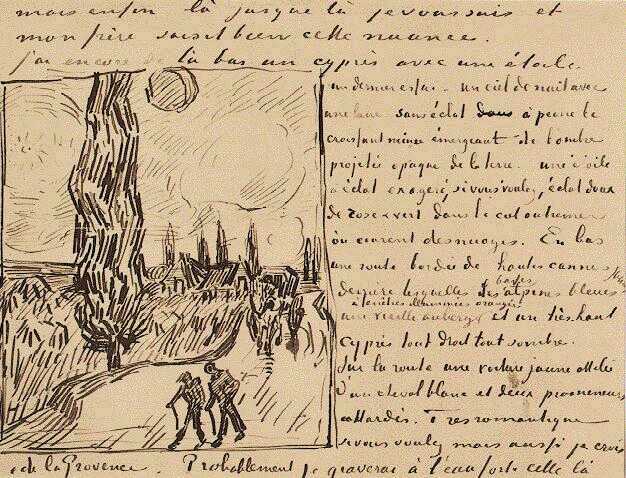 mais enfin là jusque là je vous sais et
mon père saisit bien cette nuance.
J'ai encore de là bas un cyprès avec une étoile
un dernier essai – un ciel de nuit avec
une lune sans éclat à peine le
croissant mince émergeant de l'ombre
projetée opaque de la terre – une étoile
à éclat exageré, si vous voulez, éclat doux
de rose & vert dans le ciel outremer
où courent des nuages. En bas
une route bordée de hautes cannes
derrière lesquelles les basses alpines bleues
à fenêtres illuminées orangé
une vieille auberge et un très haut
cyprès tout droit tout sombre.
Sur la route une voiture jaune attelée
d'un cheval blanc et deux promeneurs
attardés. Très romantique
si vous voulez mais aussi je crois
de la Provence. Probablement je graverai à l'eau forte celle là